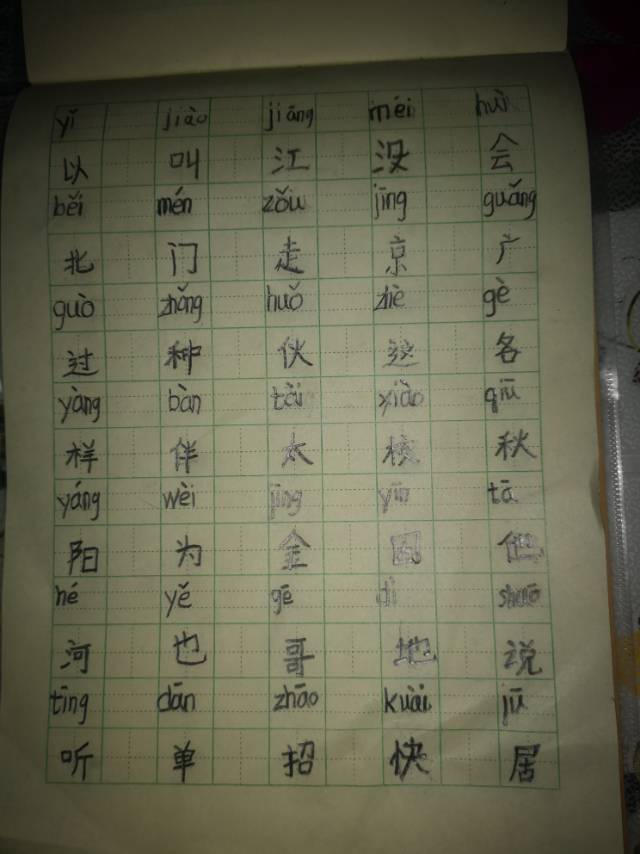 yǐ jiào jiāng méi huì
以 叫 江 没 会
běi mén zǒu jīng guǎng
北 门 走 京 广
guò zhǒng huǒ zhè gè
过 种 伙 这 各
yàng bàn tài xiào qiū
样 伴 太 校 秋
yáng wèi jīng yīn tā
阳 为 金 因 他
hé yě gē dì shuō
河 也 哥 地 说
tīng dān zhāo kuài jū
听 单 招 快 居